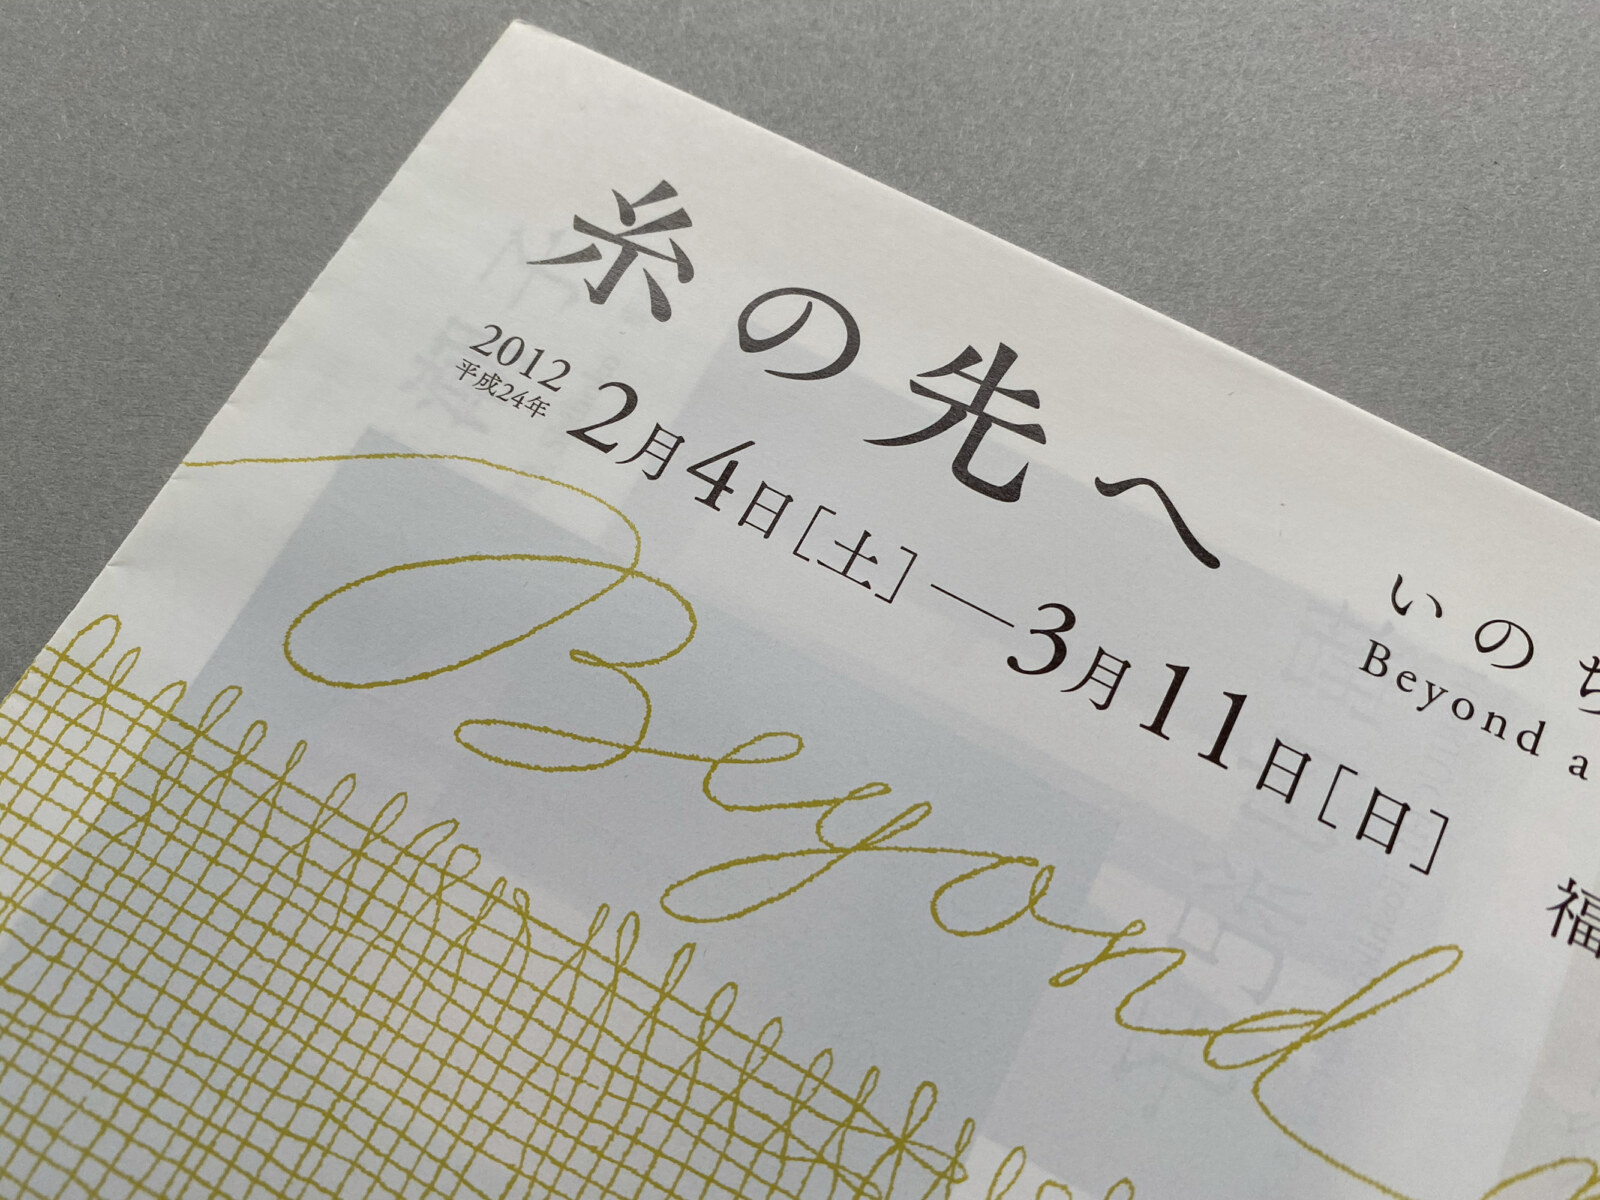 糸の先へ
2012
平成24年
2月4日[土]—3月11日[日]
いのち
Beyond a
福
Beyond